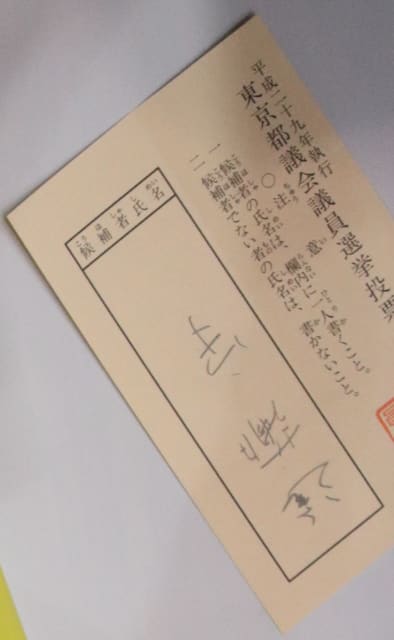 平成二十九年執行
東京都議会議員選挙投票
○注意
一 候補者の氏名は、欄内に一人書くこと。
二 候補者でない者の氏名は、書かないこと。
候補者氏名